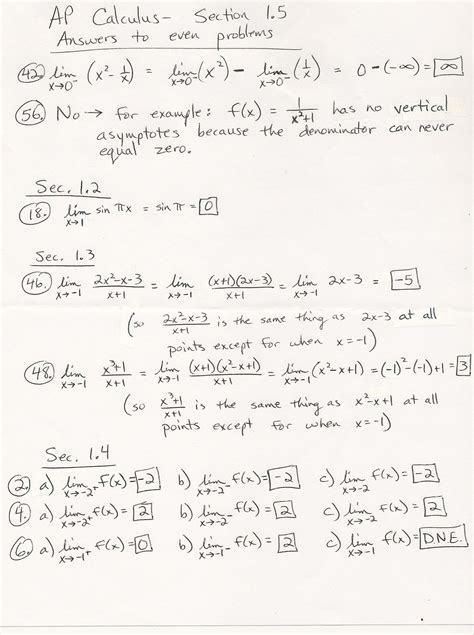 AP Calculus- Section 1.5
Answers to even problems
42. lim x→0⁻ (x² - 1/x) = lim x→0⁻ (x²) - lim x→0⁻ (1/x) = 0 - (-∞) = ∞
56. No → for example: f(x) = 1/(x²+1) has no vertical
asymptotes because the denominator can never
equal zero.
Sec. 1.2
18. lim x→1 sin πx = sin π = 0
Sec. 1.3
46. lim x→-1 (2x²-x-3)/(x+1) = lim x→-1 (x+1)(2x-3)/(x+1) = lim x→-1 2x-3 = -5
(so (2x²-x-3)/(x+1) is the same thing as 2x-3 at all
points except for when x = -1)
48. lim x→-1 (x³+1)/(x+1) = lim x→-1 (x+1)(x²-x+1)/(x+1) = lim x→-1 (x²-x+1) = (-1)²-(-1)+1 = 3
(so (x³+1)/(x+1) is the same thing as x²-x+1 at all
points except for when x=-1)
Sec. 1.4
2. a) lim x→-2⁺ f(x) = -2 b) lim x→-2⁻ f(x) = -2 c) lim x→-2 f(x) = -2
4. a) lim x→-2⁺ f(x) = 2 b) lim x→-2⁻ f(x) = 2 c) lim x→-2 f(x) = 2
6. a) lim x→-1⁺ f(x) = 0 b) lim x→-1⁻ f(x) = 2 c) lim x→-1 f(x) = D.N.E.